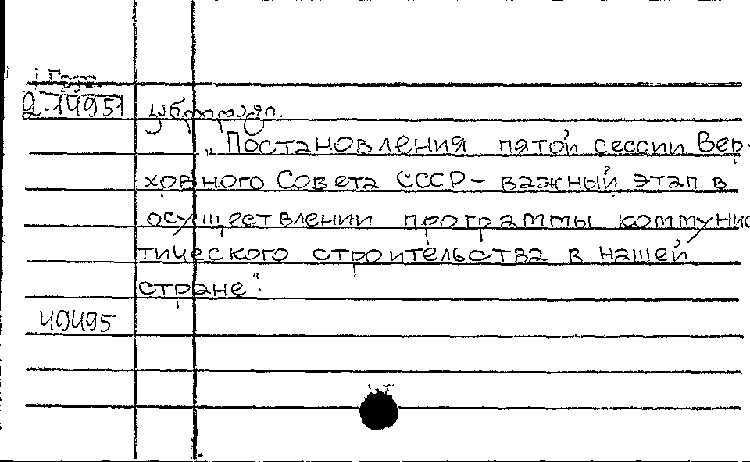 2-14951
„Постановления пятой сессии Вер-
ховного Совета СССР – важный этап в
осуществлении программы коммунис
тического строительства в нашей
стране".
40495